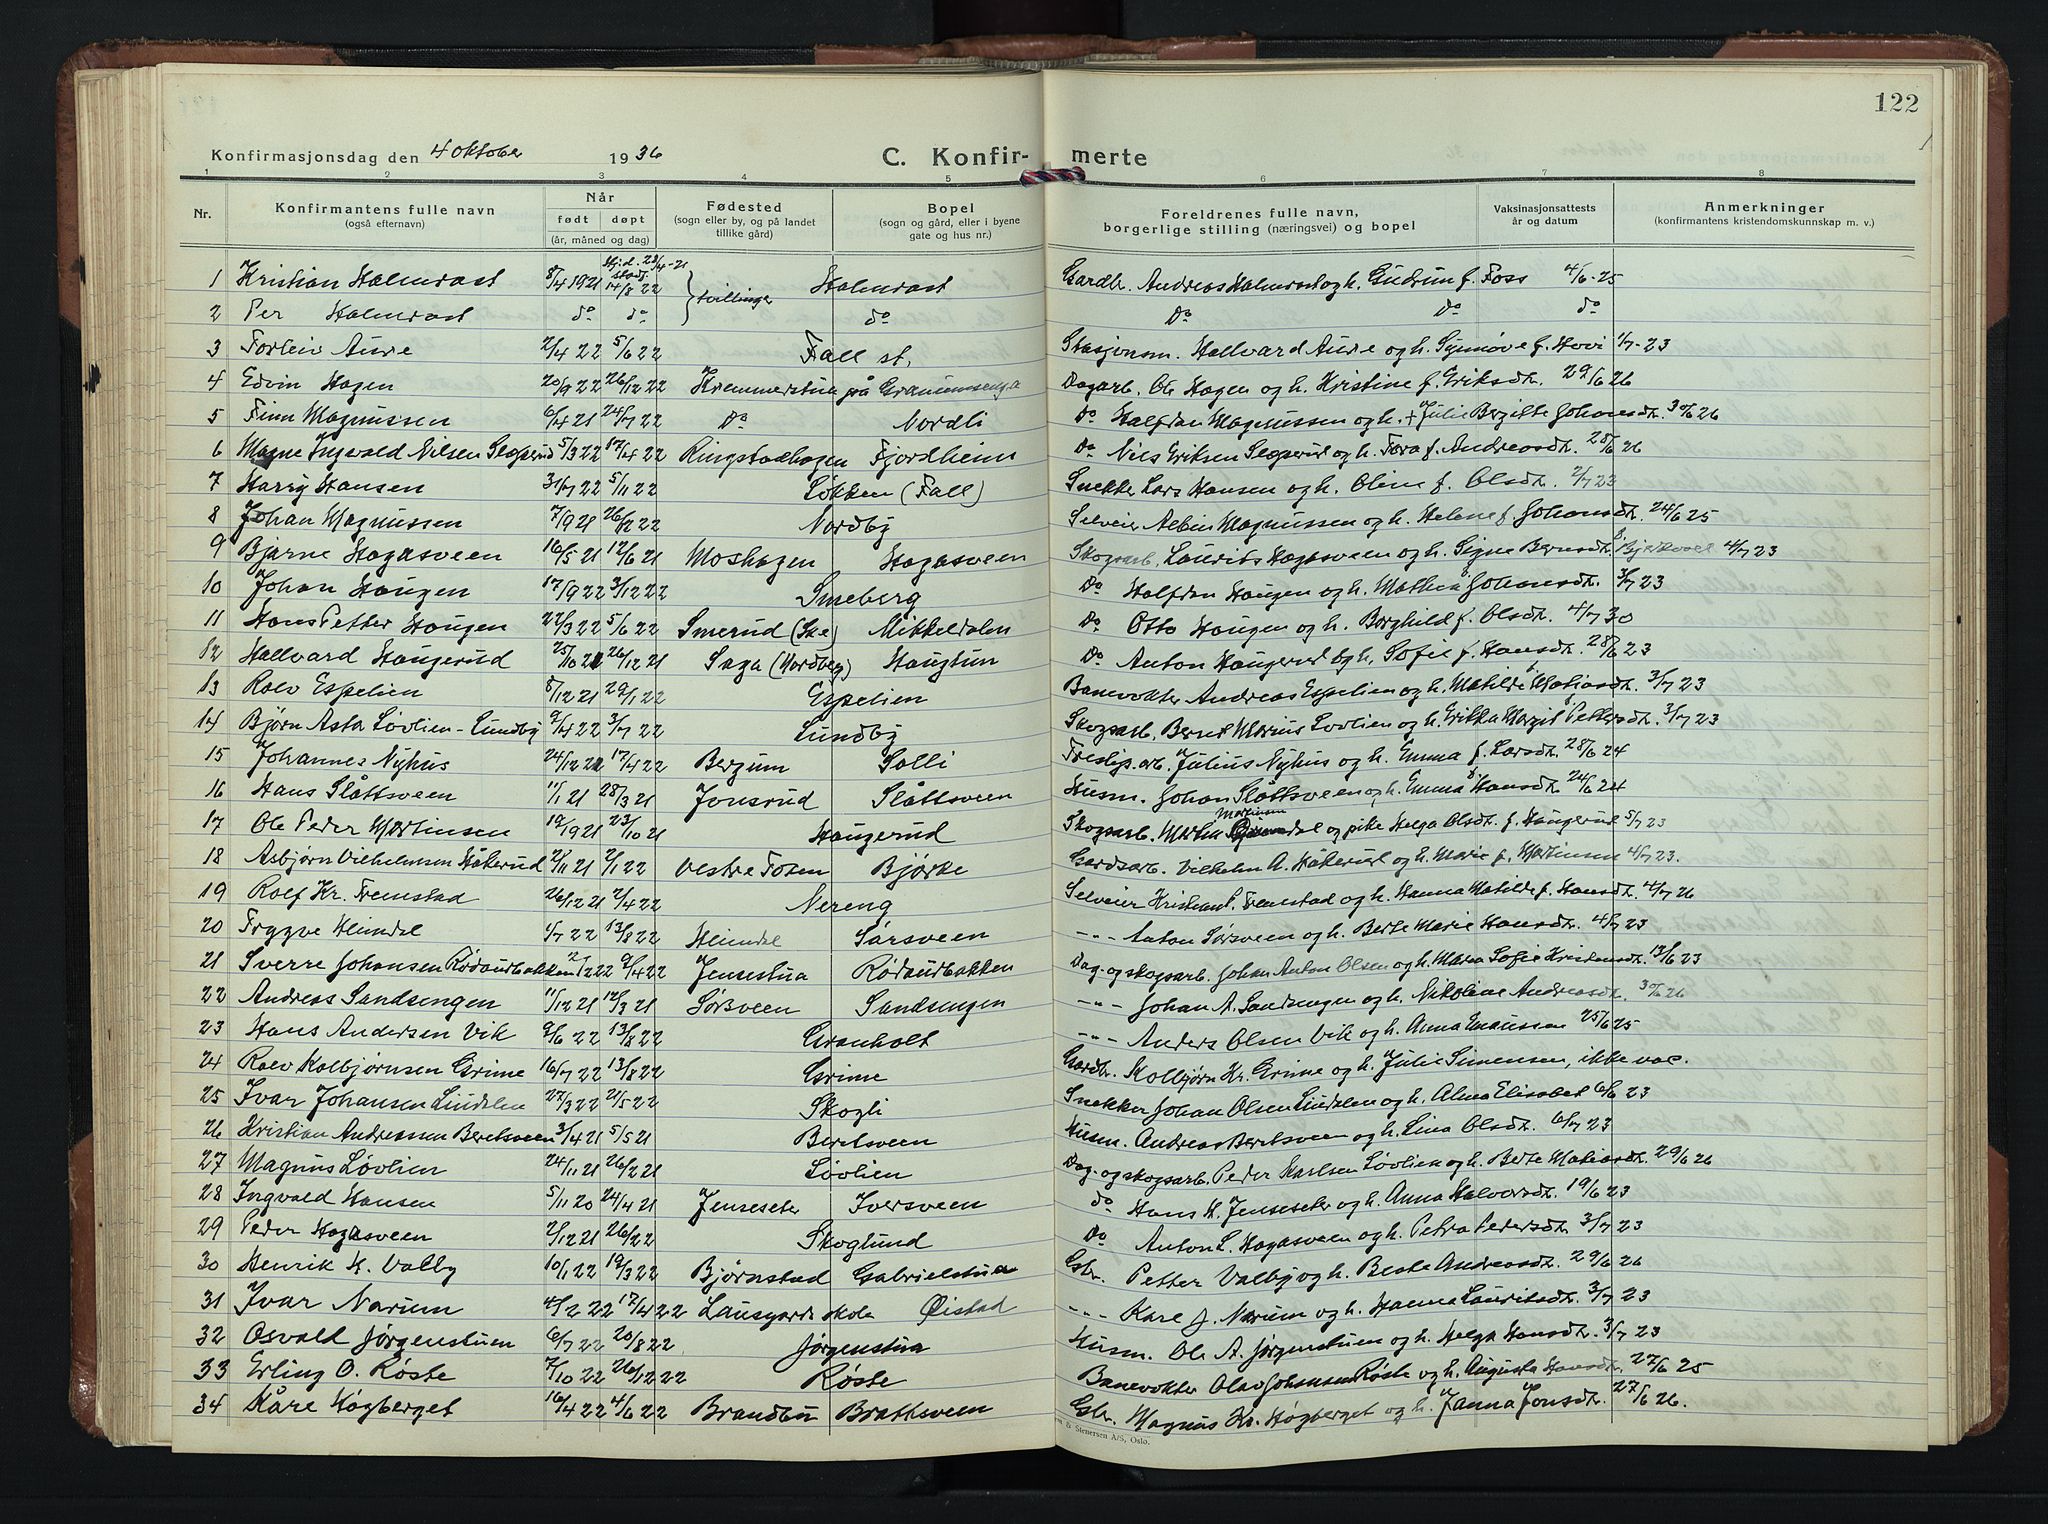 122
Konfirmasjonsdag den 4 oktober 1936 C. Konfir- merte
1 2 3 4 5 6 7 8
Nr. Konfirmantens fulle navn (også efternavn) Når født døpt (år, måned og dag) Fødested (sogn eller by, og på landet tillike gård) Bopel (sogn og gård, eller i byene gate og hus nr.) Foreldrenes fulle navn, borgerlige stilling (næringsvei) og bopel Vaksinasjonsattests år og datum Anmerkninger (konfirmantens kristendomskunnskap m. v.)
1 Kristian Halmrast 8/4 1921 hjd. 23/4-21 stadf. 14/8 22 } tvillinger Halmrast Gardbr. Andreas Halmrast og h. Gudrun f. Foss 4/6-25
2 Per Halmrast do do do Do do do
3 Torleiv Aure 2/4 22 5/6 22 Fall st. Stasjonsm. Hallvard Aure og h. Synnøve f. Hovi 1/7-23
4 Edvin Hagen 20/9 22 26/12 22 Kremmerstua på Granumsenga Dagarb. Ole Hagen og h. Kristine f. Eriksdtr. 29/6 26
5 Finn Magnussen 6/4 21 24/7 22 Do Nordli Do Halfdan Magnussen og h. + Julie Bergitte Johansdt. 30/6 26
6 Magne Ingvald Nilsen Segperud 5/3 22 17/4 22 Ringstadhagen Fjordheim Do Nils Eriksen Segperud og h. Tora f. Andreasdt. 28/6 26
7 Harry Hansen 31/7 22 5/11 22 Løkken (Fall) Snekker Lars Hansen og h. Oline f. Olsdt. 2/7 23
8 Johan Magnussen 7/9 21 26/12 22 Nordby Selveier Albin Magnussen og h. Helene f. Johansdt. 24/6 25
9 Bjarne Hagasveen 16/5 21 12/6 21 Moshagen Hagasveen Skogsarb. Laurits Hagasveen og h. Signe Berntsdt. 4/7 23
10 Johan Haugen 17/9 22 3/12 22 Smeberg Do Halfdan Haugen og h. Mathea Johansdt. 3/7 23
11 Hans Petter Haugen 22/3 22 5/6 22 Smerud (Ske) Mikkeldalen Do Otto Haugen og h. Borghild f. Olsdt. 4/7 30
12 Hallvard Haugerud 25/10 21 26/12 21 Saga (Nordberg) Haugtun Do Anton Haugerud og h. Sofie f. Hansdt. 28/6 23
13 Rolv Espelien 8/12 21 29/1 22 Espelien Banevokter Andreas Espelien og h. Matilde Matiasdt. 3/7 23
14 Bjørn Asta Løvlien-Lundby 9/4 22 3/7 22 Lundby Skogsarb. Bernt Marius Løvlien og h. Erikka Margit Pettersdt. 3/7 23
15 Johannes Nyhus 24/12 21 17/4 22 Bergum Solli Treslip.arb. Julius Nyhus og h. Emma f. Larsdt. 28/6 24
16 Hans Slåttsveen 11/1 21 28/3 21 Jonsrud Slåttsveen Husm. Johan Slåttsveen og h. Emma Hansdt. 24/6 24
17 Ole Peder Martinsen 19/9 21 23/10 21 Haugerud Skogsarb. Martin Martinsen og pike Helga Olsdt. f. Haugerud 5/7 23
18 Asbjørn Vilhelmsen Håkerud 2/11 21 2/1 22 Vestre Toten Bjørke Gardsarb. Vilhelm A. Håkerud og h. Marie f. Martinsen 4/7 23.
19 Rolf Kr. Fremstad 26/12 21 2/4 22 Nereng Selveier Kristian L. Fremstad og h. Hanna Matilde f. Hansdt. 4/7 26
20 Trygve Heimdal 1/7 22 13/8 22 Heimdal Sørsveen -"- Anton Sørsveen og h. Berte Marie Hansdt. 4/7 23
21 Sverre Johansen Rødsrudbakken 2/1 22 9/4 22 Jensestua Rødsrudbakken Dag- og skogsarb. Johan Anton Olsen og h. Maria Sofie Kristensdt. 13/6 23
22 Andreas Sandsengen 11/12 21 12/3 21 Sørsveen Sandsengen -"- Johan A. Sandsengen og h. Nikoline Andreasdt. 30/6 26
23 Hans Andersen Vik 9/6 22 13/8 22 Granholt -"- Anders Olsen Vik og h. Anna Emaussen 25/6 25
24 Rolv Kolbjørnsen Grime 16/7 22 13/8 22 Grime Gardbr. Kolbjørn Kr. Grime og h. Julie Simensen, ikke vac.
25 Ivar Johansen Lindalen 27/3 22 21/5 22 Skogli Snekker Johan Olsen Lindalen og h. Alma Elisabet 6/6 23
26 Kristian Andreassen Beritsveen 3/4 21 5/5 21 Beritsveen Husm. Andreas Beritsveen og h. Lina Olsdt. 6/7 23
27 Magnus Løvlien 24/11 21 26/2 21 Løvlien Dag- og skogsarb. Peder Karlsen Løvlien og h. Berte Matiasdt. 29/6 26
28 Ingvald Hansen 5/11 20 24/4 21 Jenseseter Iversveen do Hans H. Jenseseter og h. Anna Halvorsdt. 19/6 23
29 Peder Hagasveen 2/12 21 26/2 22 Skoglund Do Anton L. Hagasveen og h. Petra Pedersdt. 3/7 23
30 Henrik H. Valby 10/1 22 19/3 22 Bjørnstad Gabrielstua Gbr. Petter Valby og h. Berte Andreasdt. 29/6 26
31 Ivar Narum 4/2 22 17/4 22 Lausgarda skole Øistad -"- Karl J. Narum og h. Hanna Lauritsdt. 3/7 23
32 Osvald Jørgenstuen 6/7 22 20/8 22 Jørgenstua Husm. Ole A. Jørgenstuen og h. Helga Hansdt. 3/7 23
33 Erling O. Røste 7/10 22 26/12 22 Røste Banevokter Olav Johansen Røste og h. Augusta Hansdt. 27/6 25
34 Kåre Høgberget 16/4 22 4/6 22 Brandbu Brattsveen Gbr. Magnus Kr. Høgberget og h. Janna Jonsdt. 27/6 26.
Stenersen A/S, Oslo.